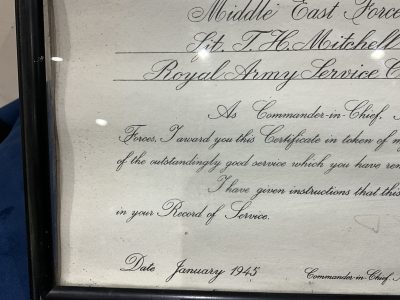 Middle East Force
Sjt. T.H. Mitchell
Royal Army Service C
As Commander-in-Chief,
Forces, I award you this Certificate in token of m
of the outstandingly good service which you have ren
I have given instructions that this
in your Record of Service.
Date January 1945
Commander-in-Chief,